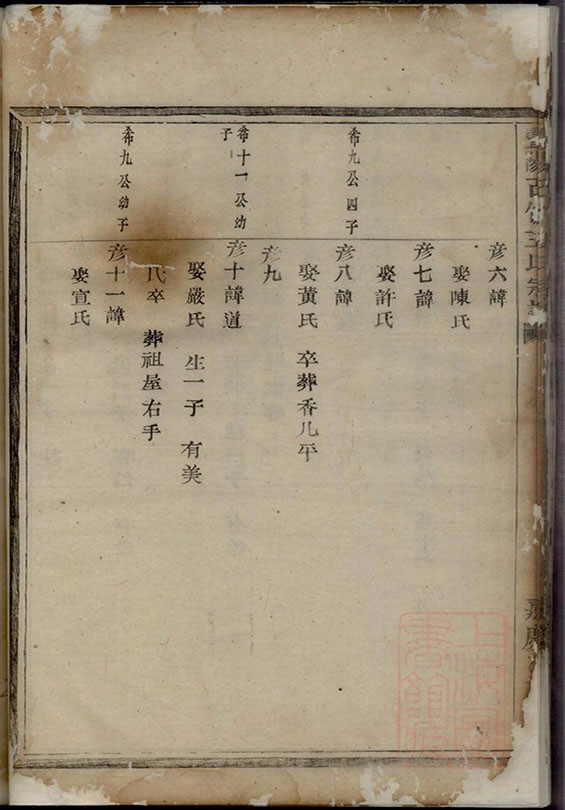 彦六諱
娶陳氏
彦七諱
娶許氏
希九公四子
彦八諱
娶黃氏 卒葬香几平
彦九
希十一公幼子
彦十諱道
娶嚴氏 生一子 有美
氏卒 葬祖屋右手
希九公幼子
彦十一諱
娶宣氏
氏宗譜
嘉慶
上海圖書館藏